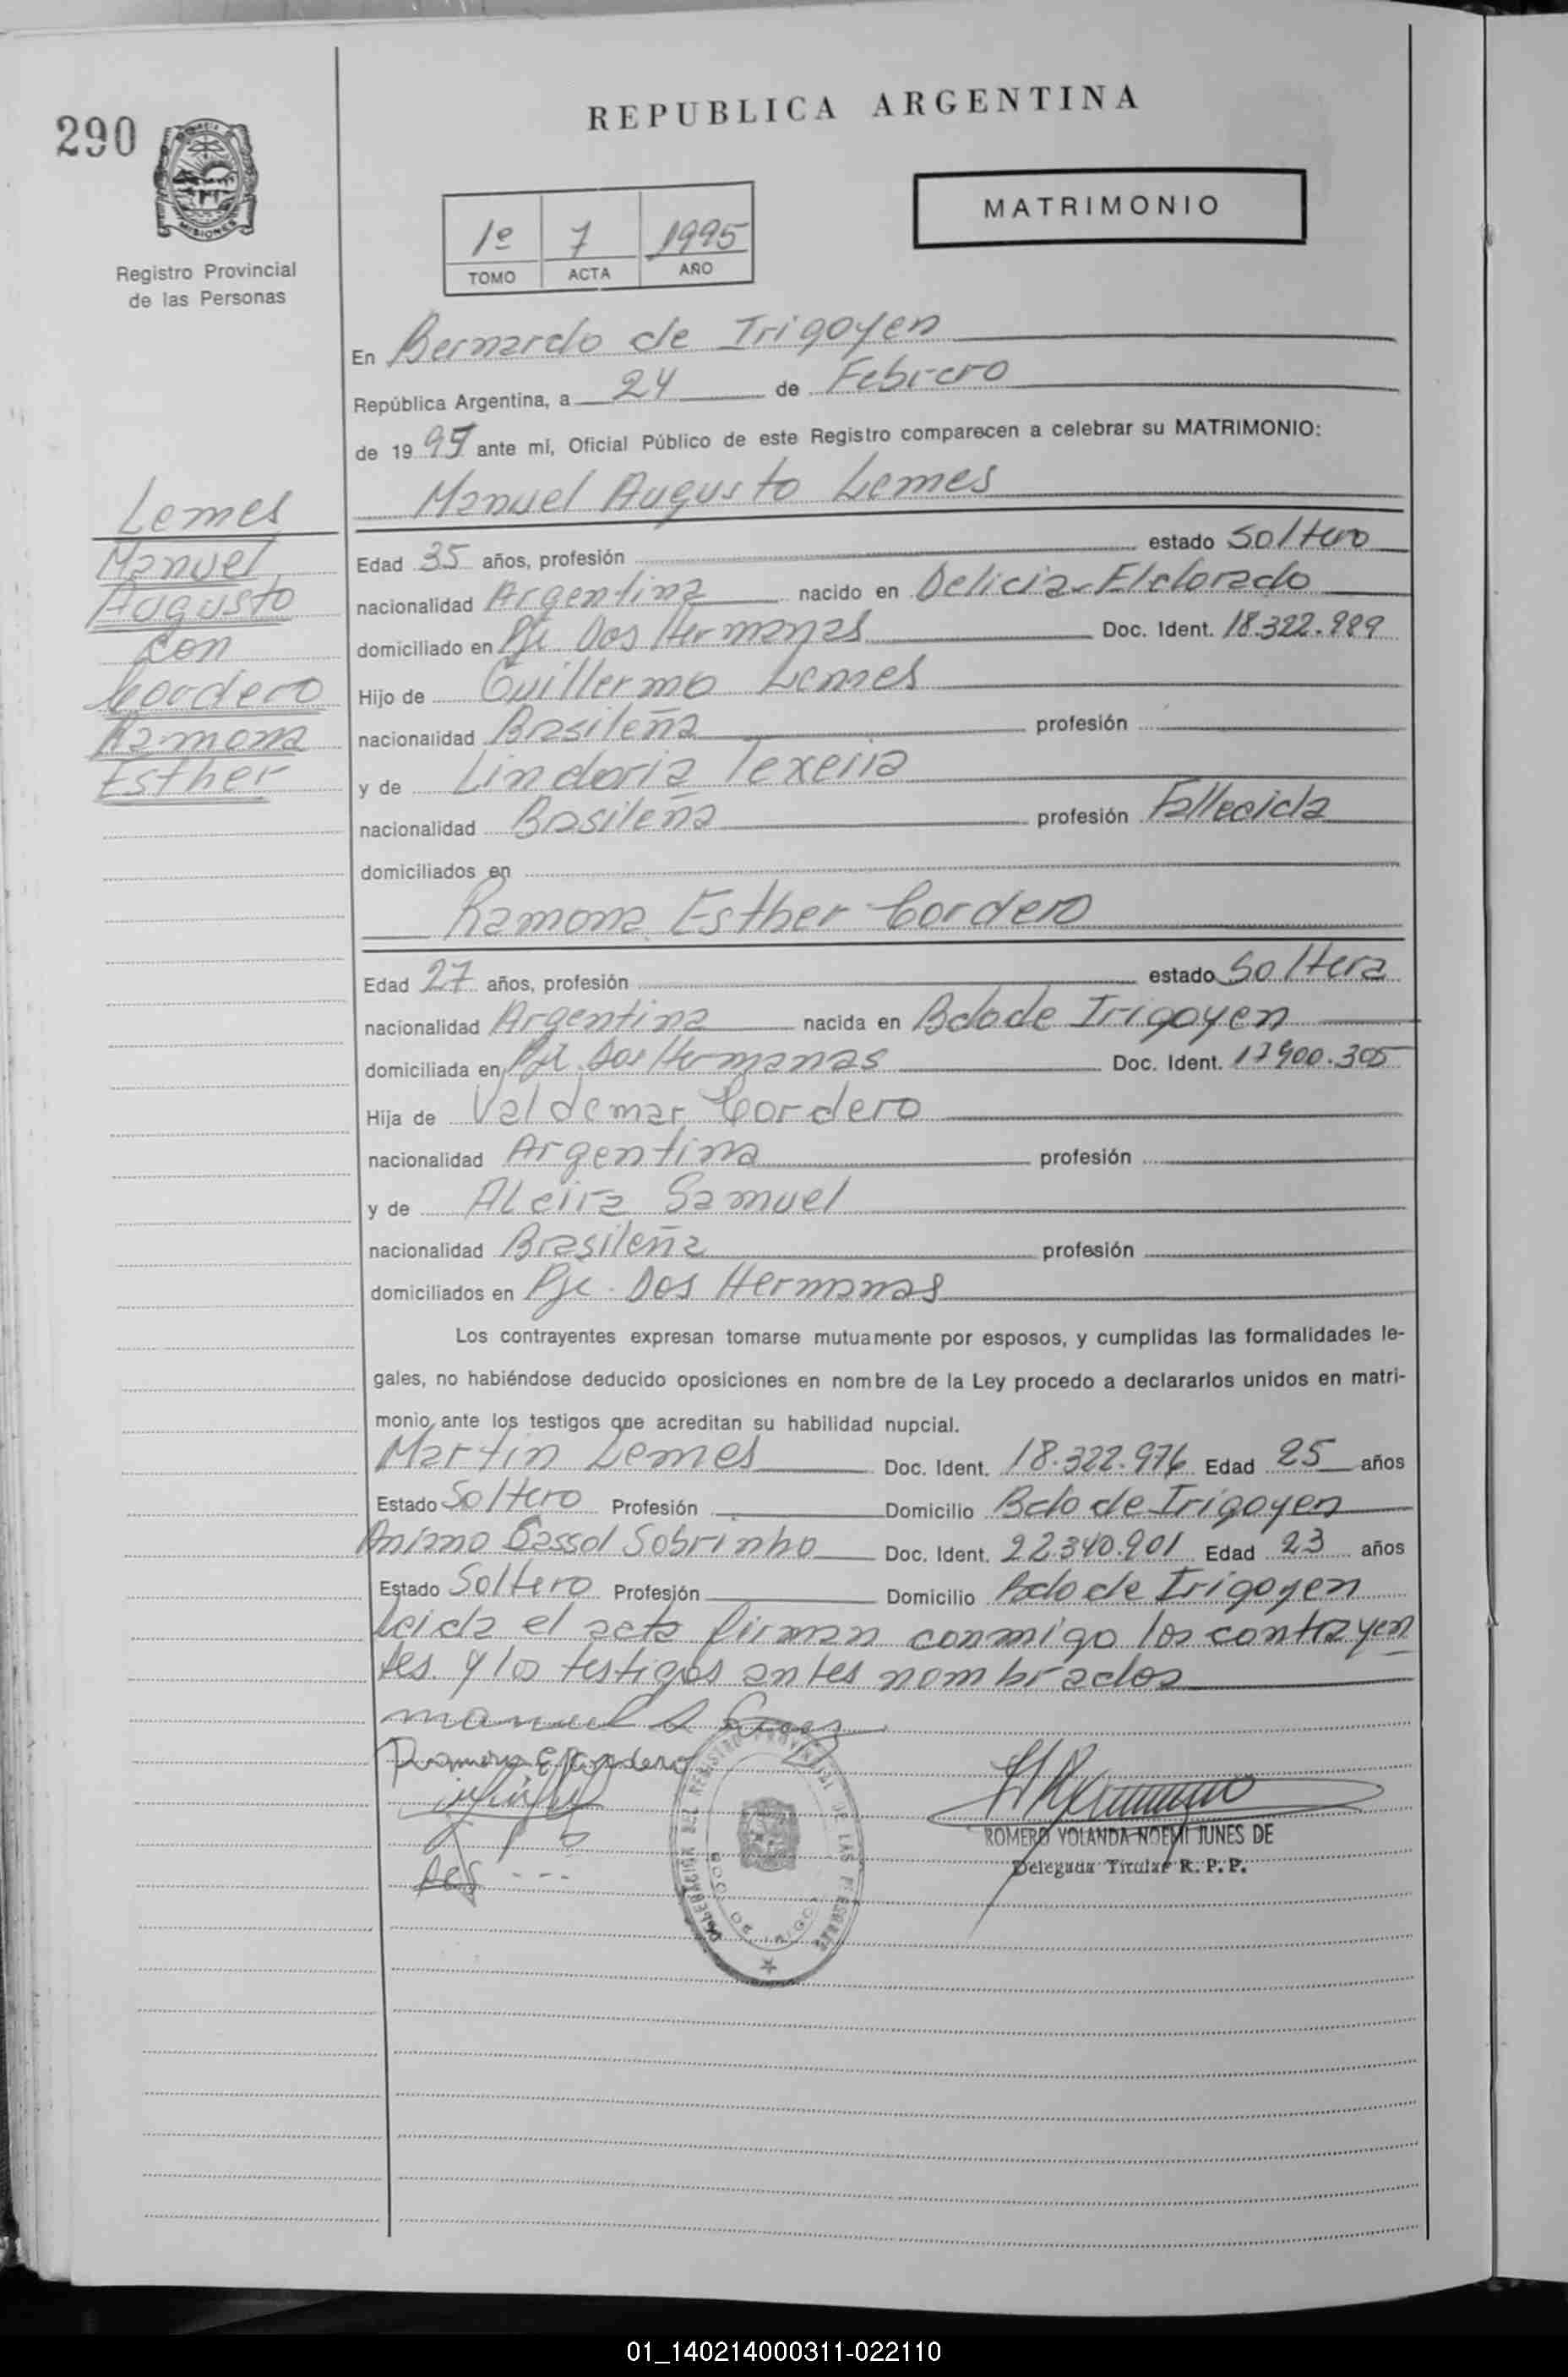 290
REPUBLICA ARGENTINA
MISIONES
Registro Provincial
de las Personas
1º 7 1995
TOMO ACTA AÑO
MATRIMONIO
En Bernardo de Irigoyen
República Argentina, a 24 de Febrero
de 1995 ante mí, Oficial Público de este Registro comparecen a celebrar su MATRIMONIO:
Manuel Augusto Lemes
Lemes
Manuel
Augusto
con
Cordero
Ramona
Esther
Edad 35 años, profesión estado Soltero
nacionalidad Argentina nacido en Delicia-Eldorado
domiciliado en Pje Dos Hermanas Doc. Ident. 18.322.989
Hijo de Guillermo Lemes
nacionalidad Brasileña profesión
y de Lindoria Texeiia
nacionalidad Brasileña profesión Fallecida
domiciliados en
Ramona Esther Cordero
Edad 27 años, profesión estado Soltera
nacionalidad Argentina nacida en Bdo de Irigoyen
domiciliada en Pje. Dos Hermanas Doc. Ident. 17900.305
Hija de Valdemar Cordero
nacionalidad Argentina profesión
y de Alcira Samuel
nacionalidad Brasileña profesión
domiciliados en Pje. Dos Hermanas
Los contrayentes expresan tomarse mutuamente por esposos, y cumplidas las formalidades le-
gales, no habiéndose deducido oposiciones en nombre de la Ley procedo a declararlos unidos en matri-
monio ante los testigos que acreditan su habilidad nupcial.
Martin Lemes Doc. Ident. 18.322.976 Edad 25 años
Estado Soltero Profesión Domicilio Bdo de Irigoyen
Sobrinho Doc. Ident. 22.340.901 Edad 23 años
Estado Soltero Profesión Domicilio Bdo de Irigoyen
leida el acta firman conmigo los contrayen
tes y los testigos antes nombrados
manuel
Ramona E Cordero
DELEGACIÓN DEL REGISTRO PROVINCIAL DE LAS PERSONAS
ROMERO YOLANDA NOEMI JUNES DE
Delegada Titular R. P. P.
01_140214000311-022110